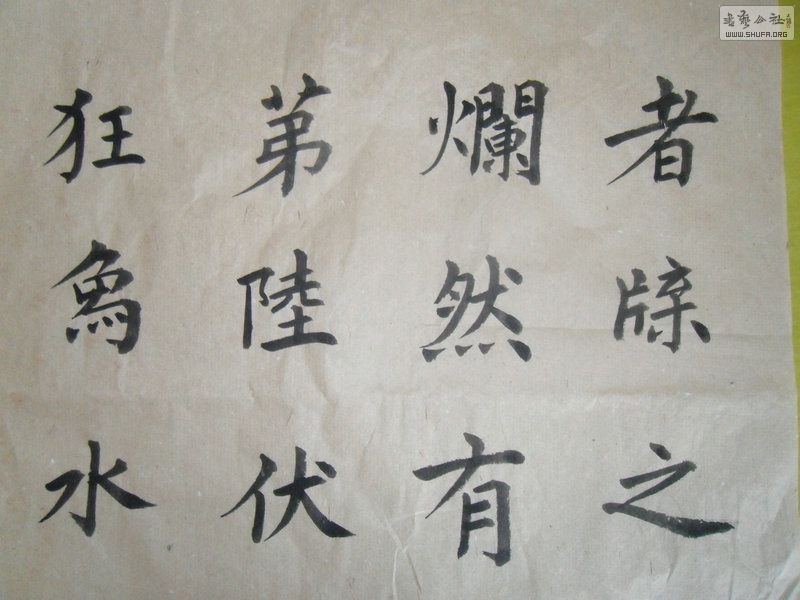 者之
爛然有
苐陸伏
狂水
書藝公社
WWW.SHUFA.ORG